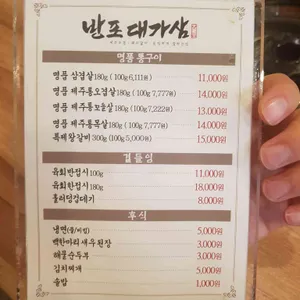 반포대가삼
명품 통구이
명품 삼겹살 180g (100g 6,111원) 11,000원
명품 제주통오겹살 180g (100g 7,777원) 14,000원
명품 제주통꼬들살 180g (100g 7,222원) 13,000원
명품 제주통목살 180g (100g 7,777원) 14,000원
특제왕갈비 300g (100g 5,000원) 15,000원
곁들임
육회반접시 100g 11,000원
육회한접시 180g 18,000원
훌러덩껍데기 8,000원
후식
냉면(물/비빔) 5,000원
백한마리새우된장 3,000원
해물순두부 3,000원
김치찌개 5,000원
솥밥 1,000원